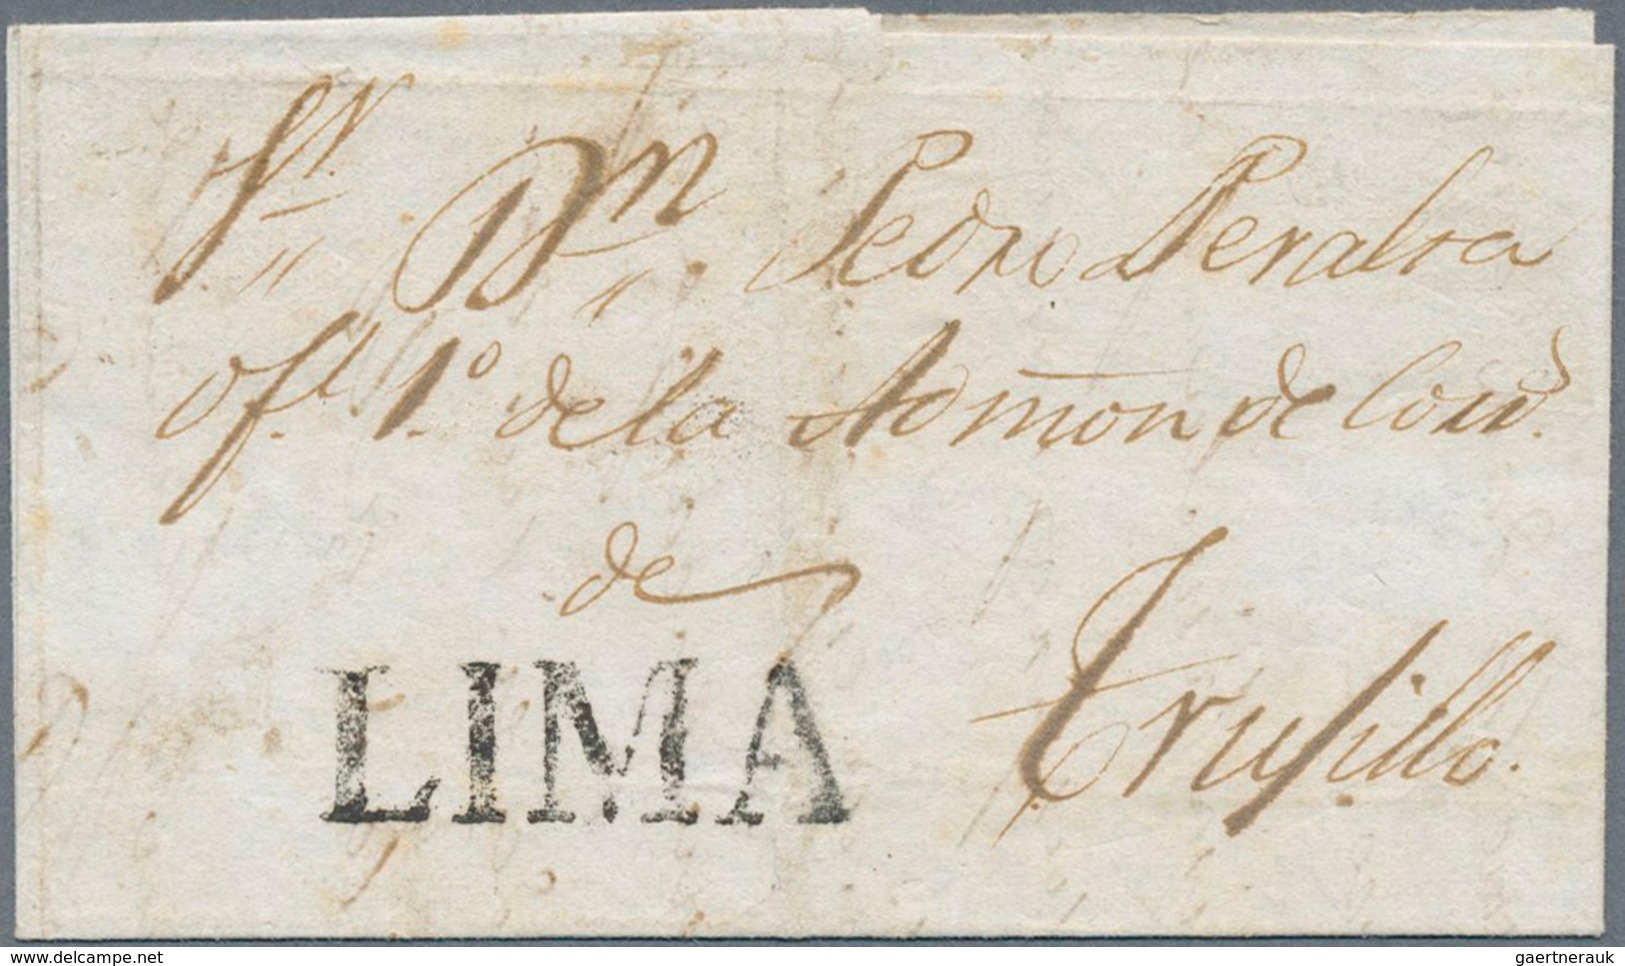 Sr. Dn Pedro Peralta
ofl. 1.º de la Admōn de Corrs.
de
LIMA Trujillo.
delcampe.net
gaertnerauk